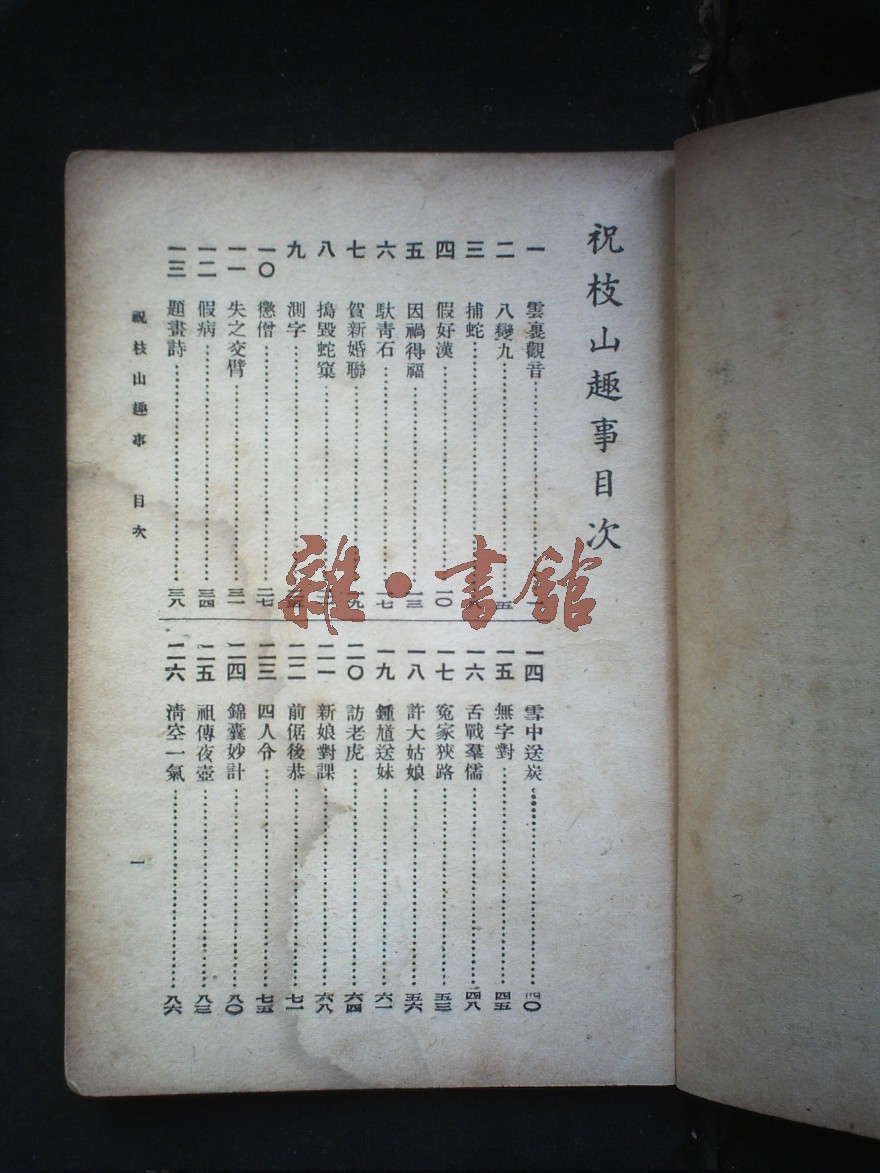 祝枝山趣事目次
一 雲裏觀音 一
二 八變九 五
三 捕蛇
四 假好漢 一〇
五 因禍得福 一三
六 馱青石 一七
七 賀新婚聯 一九
八 搗毀蛇窠
九 測字
一〇 懲僧 二七
一一 失之交臂 三一
一二 假病 三四
一三 題畫詩 三八
一四 雪中送炭 四〇
一五 無字對 四五
一六 舌戰羣儒 四八
一七 冤家狹路 五三
一八 許大姑娘 五六
一九 鍾馗送妹 六一
二〇 訪老虎 六四
二一 新娘對課 六八
二二 前倨後恭 七一
二三 四人令 七五
二四 錦囊妙計 八〇
二五 祖傳夜壺 八三
二六 清空一氣 八六
祝枝山趣事 目次 一
雜·書舘